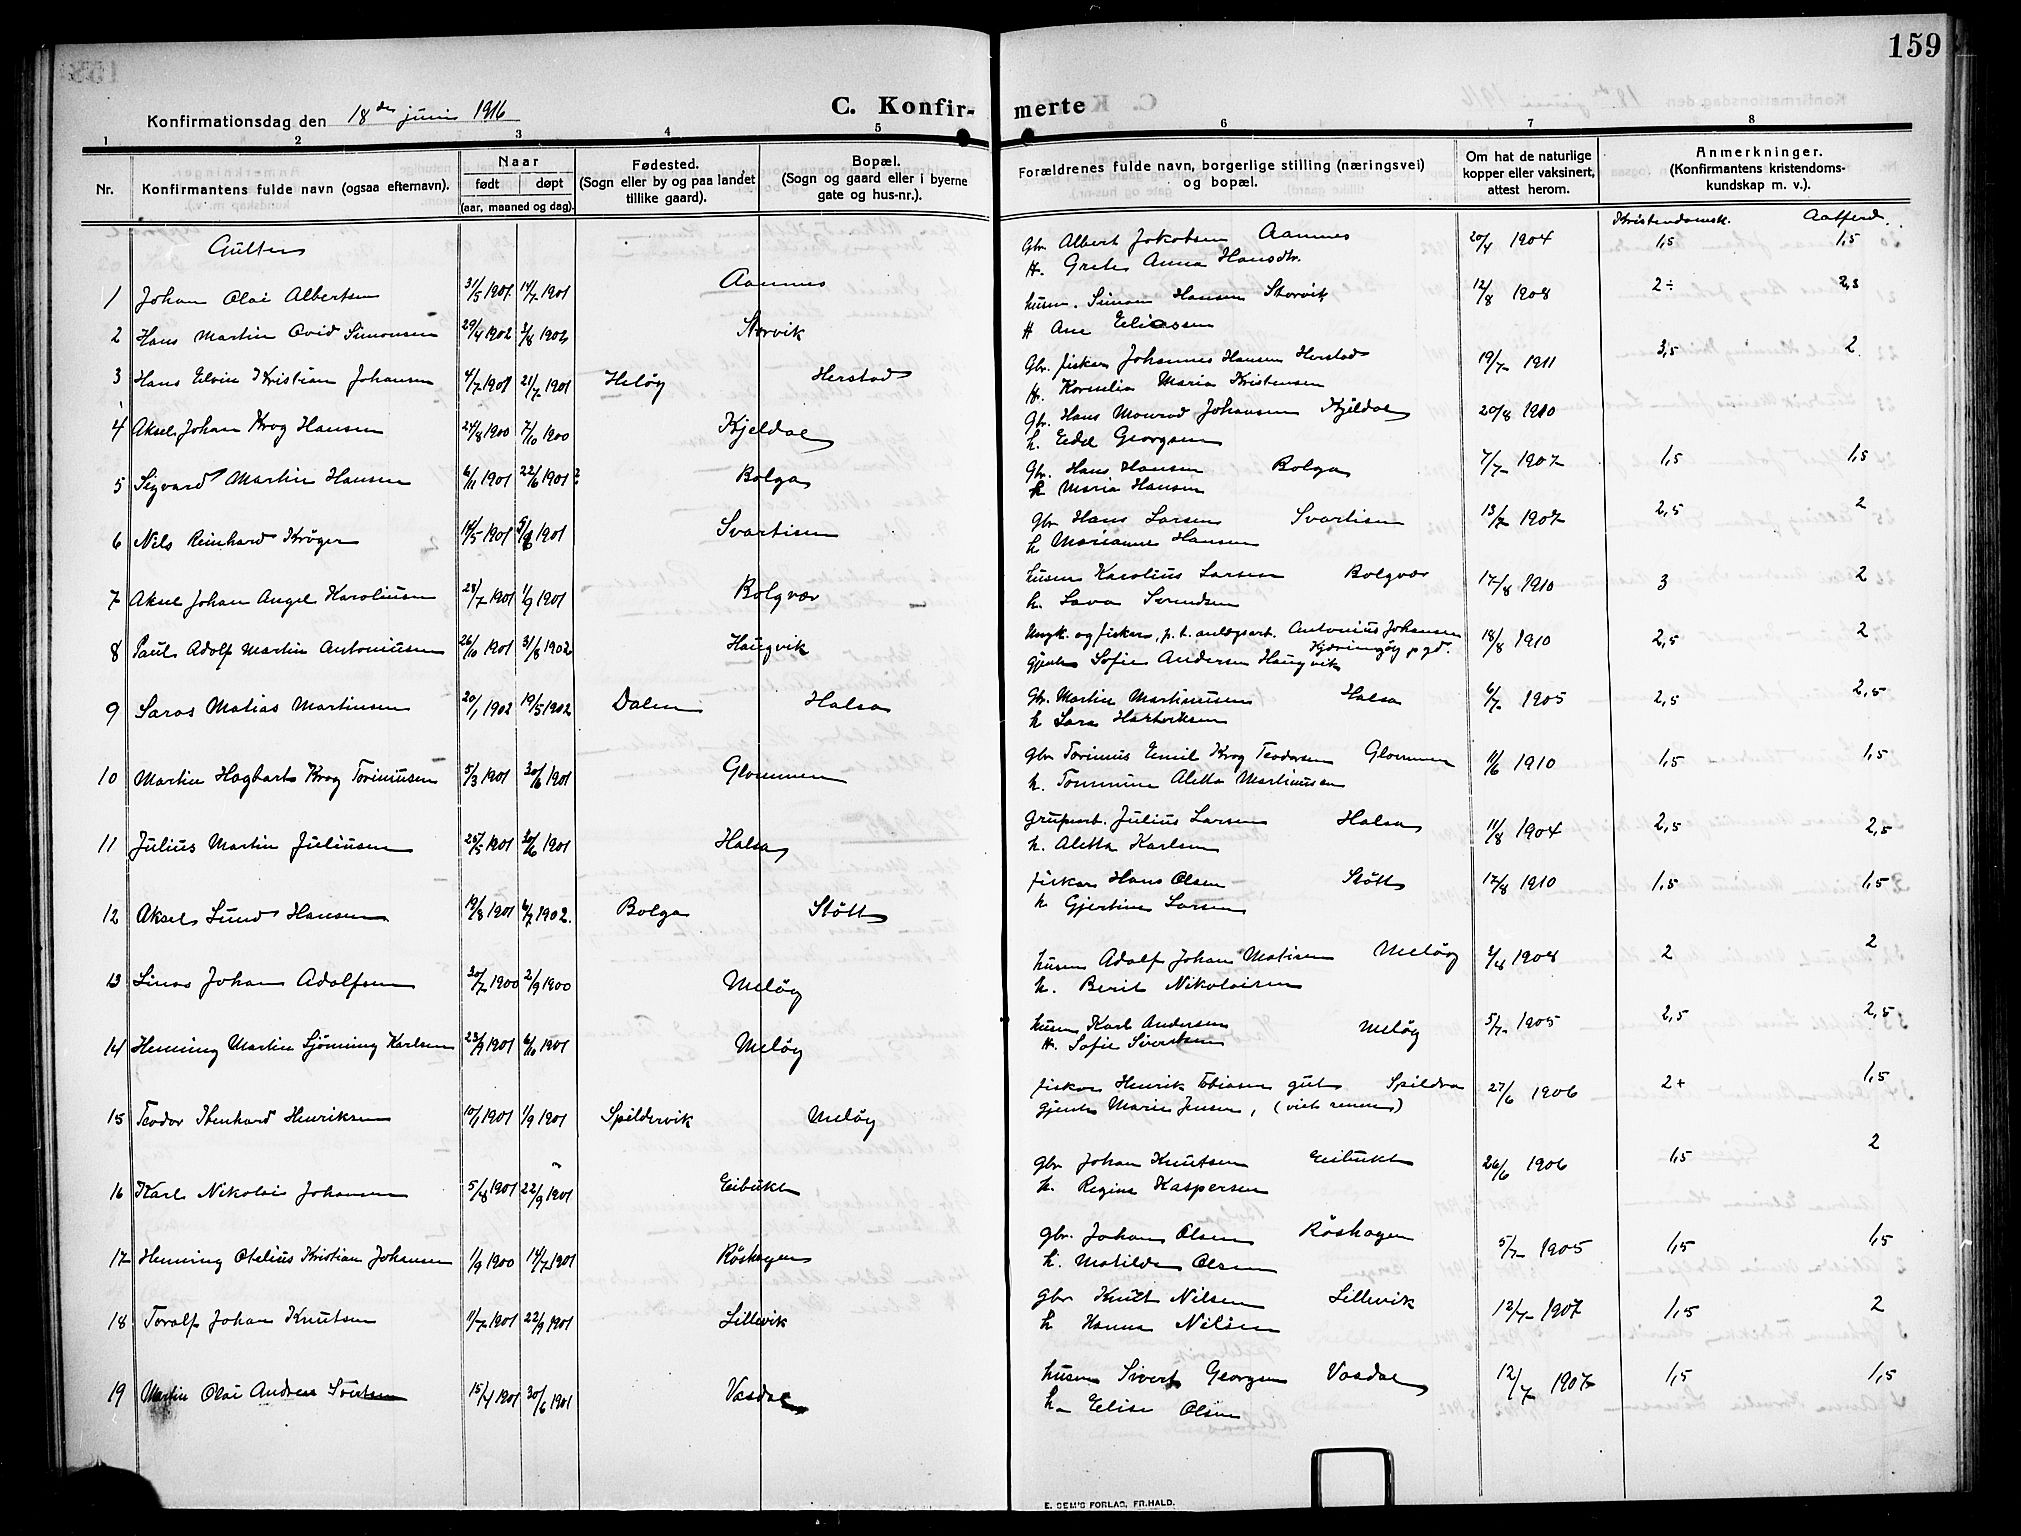 159
Konfirmationsdag den 18de juni 1916
C. Konfir-
merte
1 2 3 4 5 6 7 8
Nr. Konfirmantens fulde navn (ogsaa efternavn). Naar født døpt (aar, maaned og dag). Fødested. (Sogn eller by og paa landet tillike gaard). Bopæl. (Sogn og gaard eller i byerne gate og hus-nr.).
Forældrenes fulde navn, borgerlige stilling (næringsvei) og bopæl. Om hat de naturlige kopper eller vaksinert, attest herom. Anmerkninger. (Konfirmantens kristendoms-kundskap m. v.).
Kristendomsk. Adferd.
Gutter
1 Johan Olai Albertsen 31/5 1901 14/7 1901 Aamnes
Gbr Albert Jakobsen Aamnes 20/4 1904 1,5 1,5
H. Grete Anna Hansdtr.
2 Hans Martin Ovid Simonsen 29/4 1902 3/8 1902 Storvik
husm. Simon Hansen Storvik 12/8 1908 2÷ 2,5
H Ane Eliassen
3 Hans Elvin Kristian Johansen 4/7 1901 21/7 1901 Heløy Herstad
Gbr. fisker Johannes Hansen Herstad 19/7 1911 3,5 2
H. Kornelia Maria Kristensen
4 Aksel Johan Krog Hansen 24/8 1900 7/10 1900 Kjeldal
Gbr. Hans Monrad Johansen Kjeldal 20/8 1910
h. Edel Georgsen
5 Sigvard Martin Hansen 6/11 1901 22/6 1901? Bolga
Gbr. Hans Hansen Bolga 7/7 1907 1,5 1,5
h Maria Hansen
6 Nils Reinhard Krøger 14/5 1901 1901 Svartisen
Gbr Hans Larsen Svartisen 13/7 1907 2,5 2
h Marianne Hansen
7 Aksel Johan Angel Karoliusen 28/7 1901 1/9 1901 Bolgvær
husm Karolius Larsen Bolgvær 17/8 1910 3 2
h. Lava Svendsen
8 Paul Adolf Martin Antoniusen 26/10 1901 31/8 1902 Haugvik
Ungk. og fisker, p.t. anlægsarb. Antonius Johansen Kjerringøy pgd. 18/8 1910 2,5 2
Gjente Sofie Andersen Haugvik
9 Saras Matias Martinsen 20/1 1902 19/5 1902 Dalen Halsa
Gbr. Martin Martinussen Halsa 6/7 1905 2,5 2,5
h Sara Hartviksen
10 Martin Hagbart Krog Torinusen 5/3 1901 30/6 1901 Glommen
Gbr Torinus Emil Krog Teodorsen Glommen 11/6 1910 1,5 1,5
h. Tommine Aletta Martinussen
11 Julius Martin Juliusen 25/5 1901 30/6 1901 Halsa
Grubearb. Julius Larsen Halsa 11/8 1904 2,5 2,5
h. Aletta Karlsen
12 Aksel Lund Hansen 19/8 1901 6/7 1902. Bolga Støtt
fisker Hans Olsen Støtt 17/8 1910 1,5 1,5
h Gjertine Larsen
13 Linas Johan Adolfsen 30/7 1900 2/9 1900 Meløy
husm Adolf Johan Matisen Meløy 3/8 1908 2 2
h. Berit Nikolaisen
14 Henning Martin Sjønning Karlsen 23/9 1901 6/10 1901 Meløy
husm Karl Andersen Meløy 5/7 1905 2,5 2,5
H. Sofie Sivertsen
15 Teodor Henrik­sen 10/1 1901 1/9 1901 Spildervik Meløy
fisker Henrik Tobiasen gut Spildra 27/6 1906 2+ 1,5
Gjente Marie Jensen, (viet senere)
16 Karl Nikolai Johansen 5/8 1901 22/9 1901 Eibukt
Gbr Johan Knutsen Eibukt 26/6 1906 1,5 2
h. Regine Kaspersen
17 Henning Otelius Kristian Johansen 1/9 1900 14/7 1901 Røshagen
Gbr. Johan Olsen Røshagen 5/7 1905 1,5 1,5
h. Matilde Olsen
18 Toralf Johan Knutsen 11/7 1901 22/9 1901 Lillevik
Gbr Knut Nilsen Lillevik 12/7 1907 1,5 2
h Hanna Nilsen
19 Martin Olai Andreas Sivertsen 15/4 1901 30/6 1901 Vasdal
husm Sivert Georgsen Vasdal 12/7 1907 1,5 1,5
h. Elise Olsen
E. SEM'S FORLAG, FR.HALD.